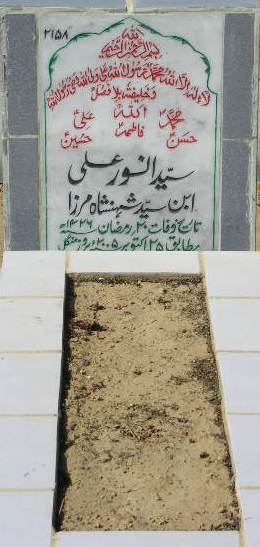 ۲۱۵۸
بسم اللہ الرحمن الرحیم
لا الہ الا اللہ محمد رسول اللہ علی ولی اللہ وصی رسول اللہ
و خلیفتہ بلا فصل
اللہ
محمدؐ علیؑ
فاطمہؑ
حسنؑ حسینؑ
سید انور علی
ابن سید شہنشاہ مرزا
تاریخ وفات ۲۰ رمضان ۱۴۲۶ھ
مطابق ۲۵ اکتوبر ۲۰۰۵ء روز منگل